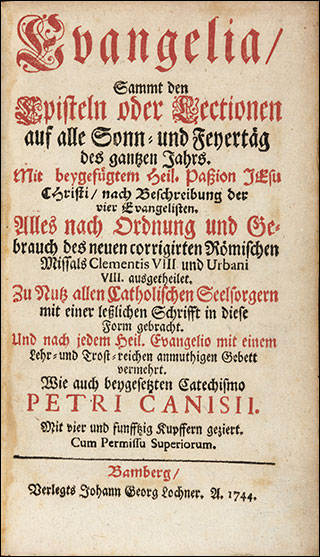 Evangelia/
Sammt den
Episteln oder Lectionen
auf alle Sonn- und Feyertäg
des gantzen Jahrs.
Mit beygefügtem Heil. Paßion JEsu
CHristi/ nach Beschreibung der
vier Evangelisten.
Alles nach Ordnung und Ge-
brauch des neuen corrigirten Römischen
Missals Clementis VIII und Urbani
VIII. ausgetheilet.
Zu Nutz allen Catholischen Seelsorgern
mit einer leßlichen Schrifft in diese
Form gebracht.
Und nach jedem Heil. Evangelio mit einem
Lehr- und Trost-reichen anmuthigen Gebett
vermehrt.
Wie auch beygesetzten Catechismo
PETRI CANISII.
Mit vier und funfftzig Kupffern geziert.
Cum Permissu Superiorum.
Bamberg/
Verlegts Johann Georg Lochner. A. 1744.